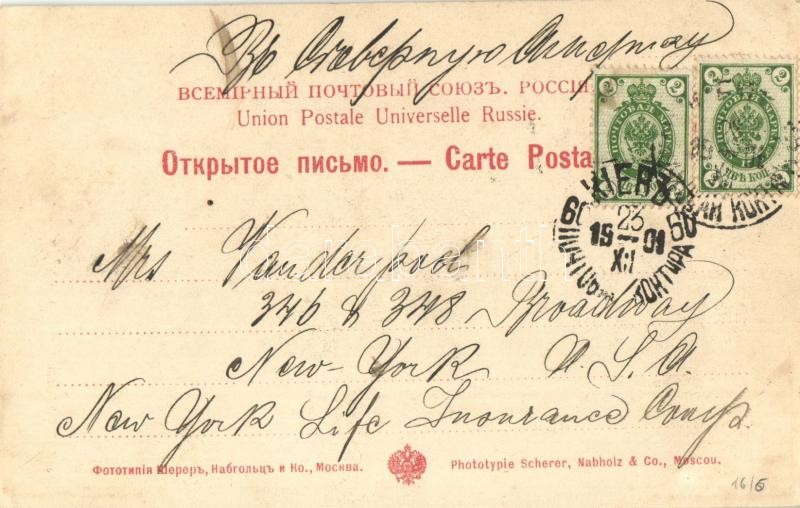 Въ Сѣверную Америку
ВСЕМІРНЫЙ ПОЧТОВЫЙ СОЮЗЪ. РОССІЯ
Union Postale Universelle Russie.
Открытое письмо. — Carte Posta
2 2
2 2
ПОЧТОВАЯ МАРКА
ПОЧТОВАЯ МАРКА
ДВѢ КОП.
КІЕВЪ
23
60 19—01 60
XII
КОНТОРА
Mrs Vanderpool
346 & 348 Broadway
New-York U.S.A.
New York Life Insurance Comp.
Фототипія Шереръ, Набгольцъ и Ко., Москва.
Phototypie Scherer, Nabholz & Co., Moscou.
16/6